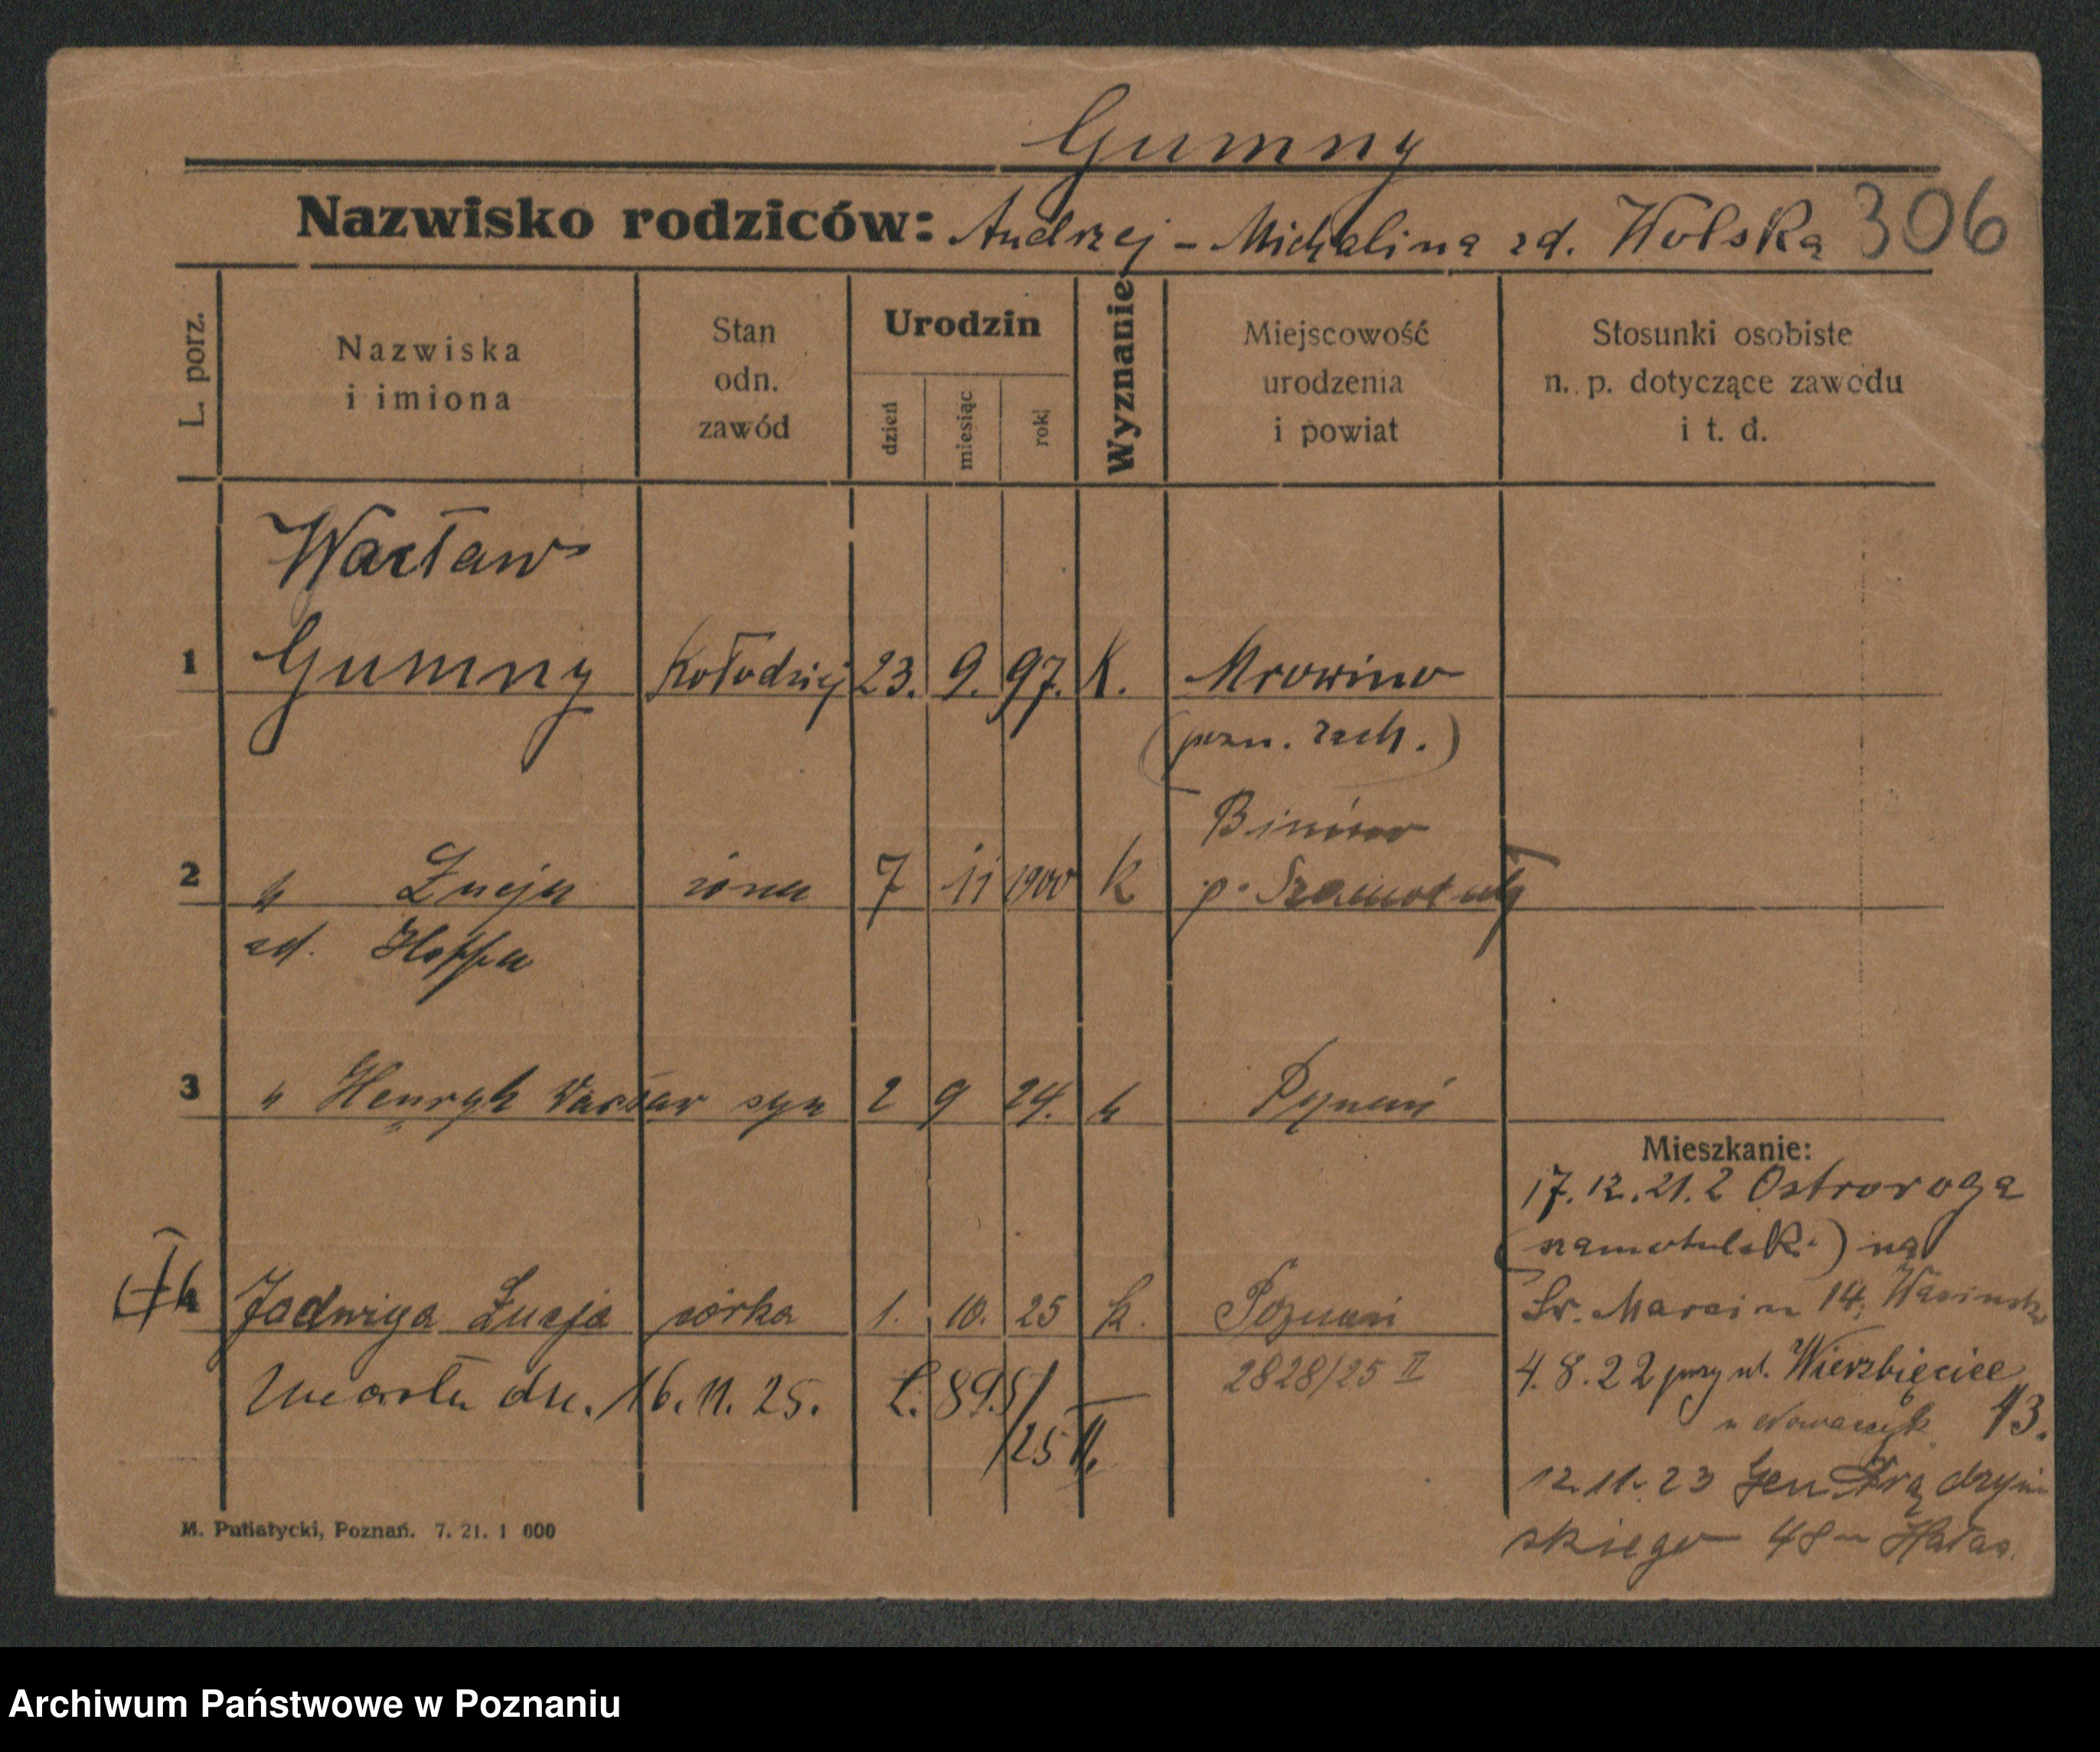 Gumny
Nazwisko rodziców: Andrzej - Michalina zd. Wolska 306
L. porz.
Nazwiska i imiona
Stan odn. zawód
Urodzin
dzień
miesiąc
rok
Wyznanie
Miejscowość urodzenia i powiat
Stosunki osobiste n. p. dotyczące zawodu i t. d.
Wacław
1 Gumny Kołodziej 23. 9. 97. K. Mrowino
(pozn. zach.)
Binino
2 " Łucja żona 7 11 1900 k p. Szamotuły
zd. Hoffa
3 " Henryk Wacław syn 2 9 24. k Poznań
Mieszkanie:
17.12.21. z Ostroroga
(szamotulsk.) na
4 Jadwiga Łucja córka 1. 10. 25 k. Poznań
Św. Marcin 14,
Umarła dn. 16.11.25. L. 895/25 II.
2828/25 II
4.8.22 przy ul. Wierzbięcice 13.
u Nowaczyk
12.11.23 Gen. Prądzyń-
skiego 48 u Hałas.
M. Putiatycki, Poznań. 7. 21. 1 000
Archiwum Państwowe w Poznaniu